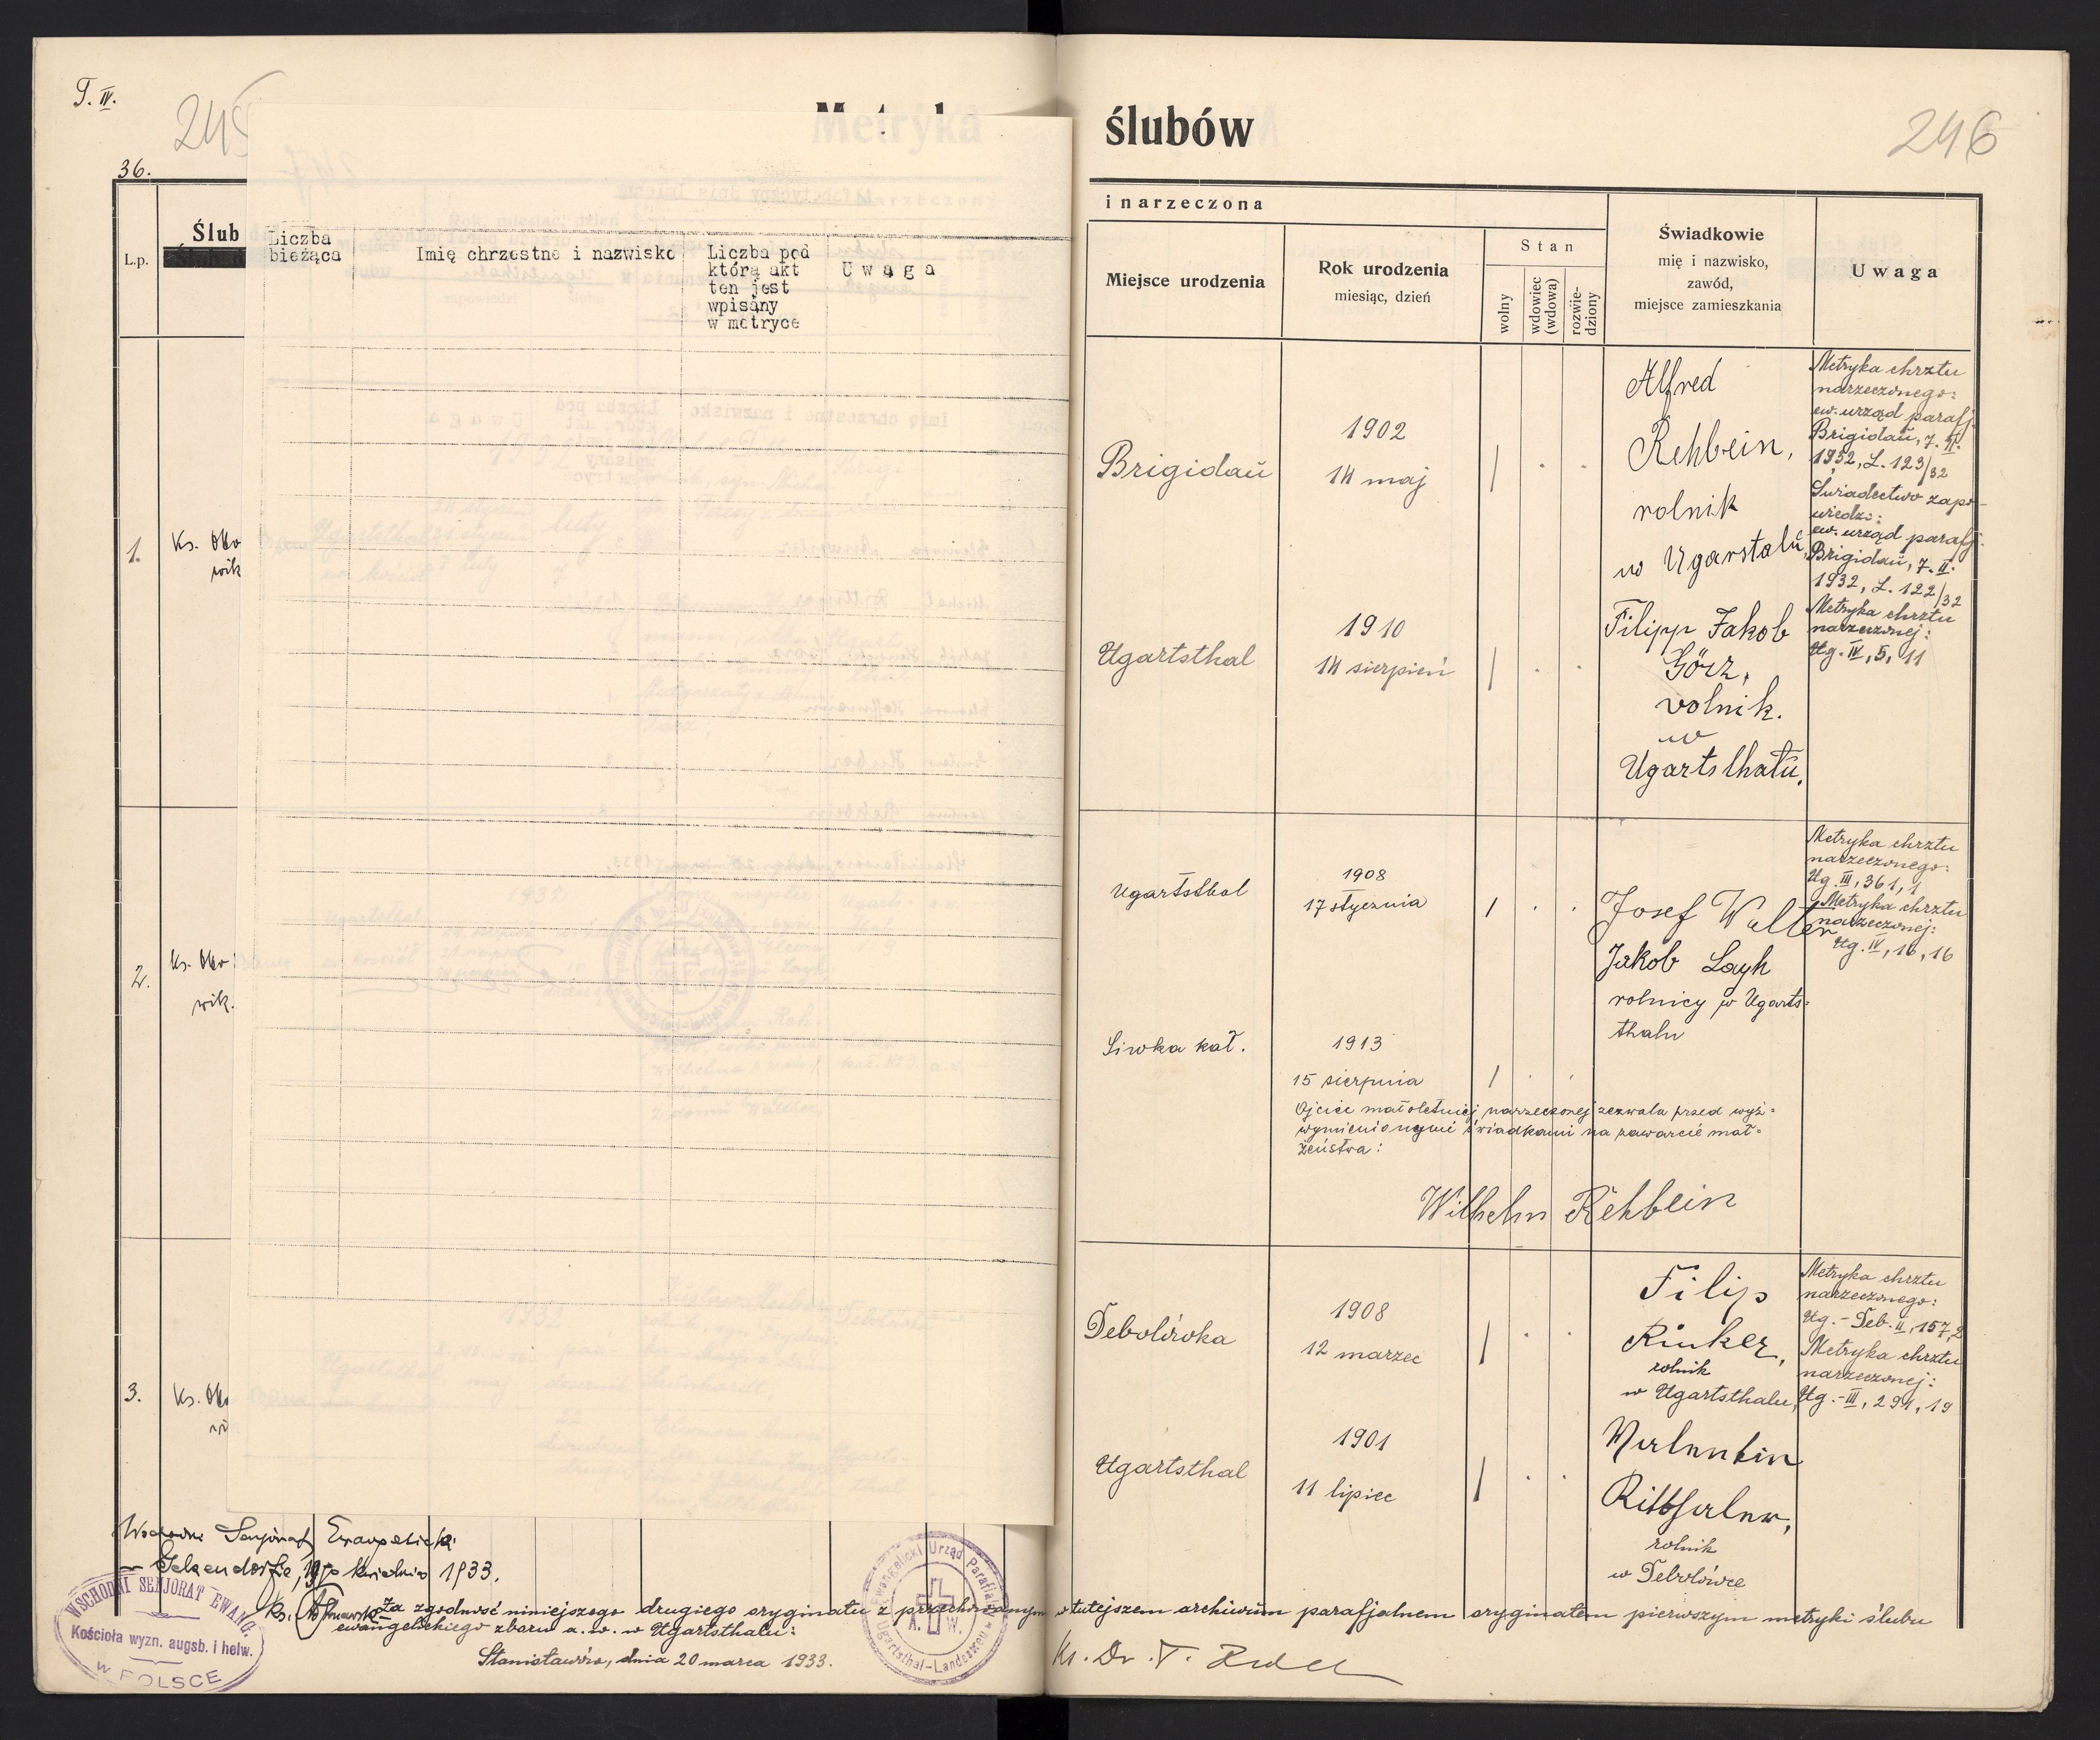 T. IV.
245
36.
Metryka
ślubów
246
L.p.
Ślub
Liczba
bieżąca
Imię chrzestne i nazwisko
Liczba pod
którą akt
ten jest
wpisany
w metryce
Uwaga
i narzeczona
Miejsce urodzenia
Rok urodzenia
miesiąc, dzień
Stan
wolny
wdowiec
(wdowa)
rozwie-
dziony
Świadkowie
mię i nazwisko,
zawód,
miejsce zamieszkania
Uwaga
1.
Ks.
wik
Brigidaŭ
1902
14 maj
Alfred
Rehbein,
rolnik
w Ugarstalŭ,
Metryka chrztu
narzeczonego:
ew. urząd parafj.
Brigidaŭ, 7. II.
1932, L. 123/32
Świadectwo zapo-
wiedzi:
ew. urząd parafj.
Brigidaŭ, 7. II.
1932, L. 122/32
Ugartsthal
1910
14 sierpień
Filipp Jakob
Görz,
rolnik.
w
Ugartslhatŭ.
Metryka chrztu
narzeczonej:
Ug. IV, 5, 11
2.
Ks.
wik.
Ugartsthal
1908
17 stycznia
Josef Walter
Jakob Layh
rolnicy w Ugarts=
thalu
Metryka chrztu
narzeczonego:
Ug. III, 361, 1
Metryka chrztu
narzeczonej:
Ug. IV, 16, 16
Siwka kał.
1913
15 sierpnia
Ojciec małoletniej narzeczonej zezwala przed wyż=
wymienionymi świadkami na zawarcie mał=
żeństwa:
Wilhelm Rehbein
3.
Ks.
Debolówka
1908
12 marzec
Filip
Rinker,
rolnik
w Ugartsthalu,
Metryka chrztu
narzeczonego:
Ug. - Deb. II, 157, 2
Metryka chrztu
narzeczonej:
Ug. - III, 291, 19
Ugartsthal
1901
11 lipiec
Valentin
Ritthaler,
rolnik
w Debolówce
Wschodni Senjorat Ewangelicki
kwietnia 1933.
WSCHODNI SENJORAT EWANG.
Kościoła wyzn. augsb. i helw.
w POLSCE
Ewangelicki Urząd Parafialny
A. W.
Ugartsthal-Landestreu
Za zgodność niniejszego drugiego oryginału z przechowanym w tutejszem archiwum parafjalnem oryginałem pierwszym metryki ślubu
ewangelickiego zboru a. w. w Ugartsthalu:
Stanisławów, dnia 20 marca 1933.
Ks. Dr. T.